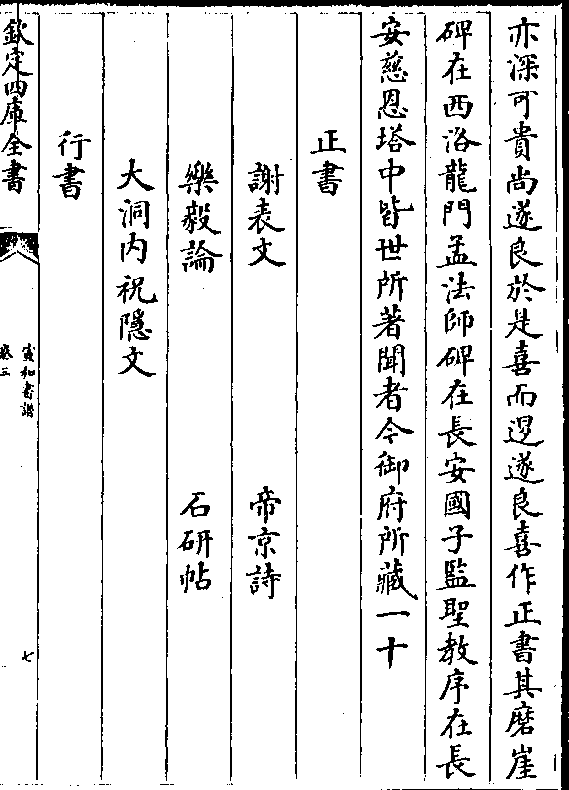 亦深可貴尚遂良於是喜而退遂良喜作正書其磨崖
碑在西洛龍門孟法師碑在長安國子監聖教序在長
安慈恩塔中皆世所著聞者今御府所藏一十
正書
謝表文　帝京詩
樂毅論　石研帖
大洞内祝隱文
行書
欽定四庫全書
宣和書譜
卷三
七